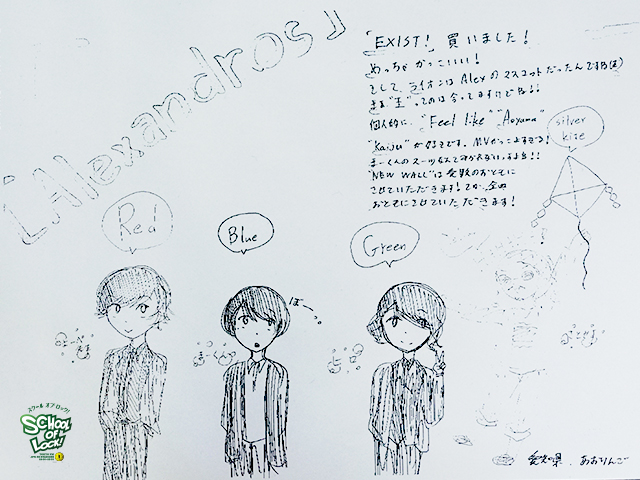 『[Alexandros]』
「EXIST!」買いました!
めっちゃかっこいい!
そして、ライオンはAlexのマスコットだったんですね(笑)
まぁ"王"ってのは合ってますけどね!!
個人的に、"Feel like" "Aoyama"
"Kaiju"が好きです。MVかっこよすぎる!
まーくんのスーツ
"NEW WALL"は受験のおともに
させていただきます!てか、全曲
おともにさせていただきます!
silver kite
Red
Blue
Green
ぼーっ。
まーくん
ヒロ
スクール オブ ロック!
SCHOOL OF LOCK!
愛知県 あおりんご